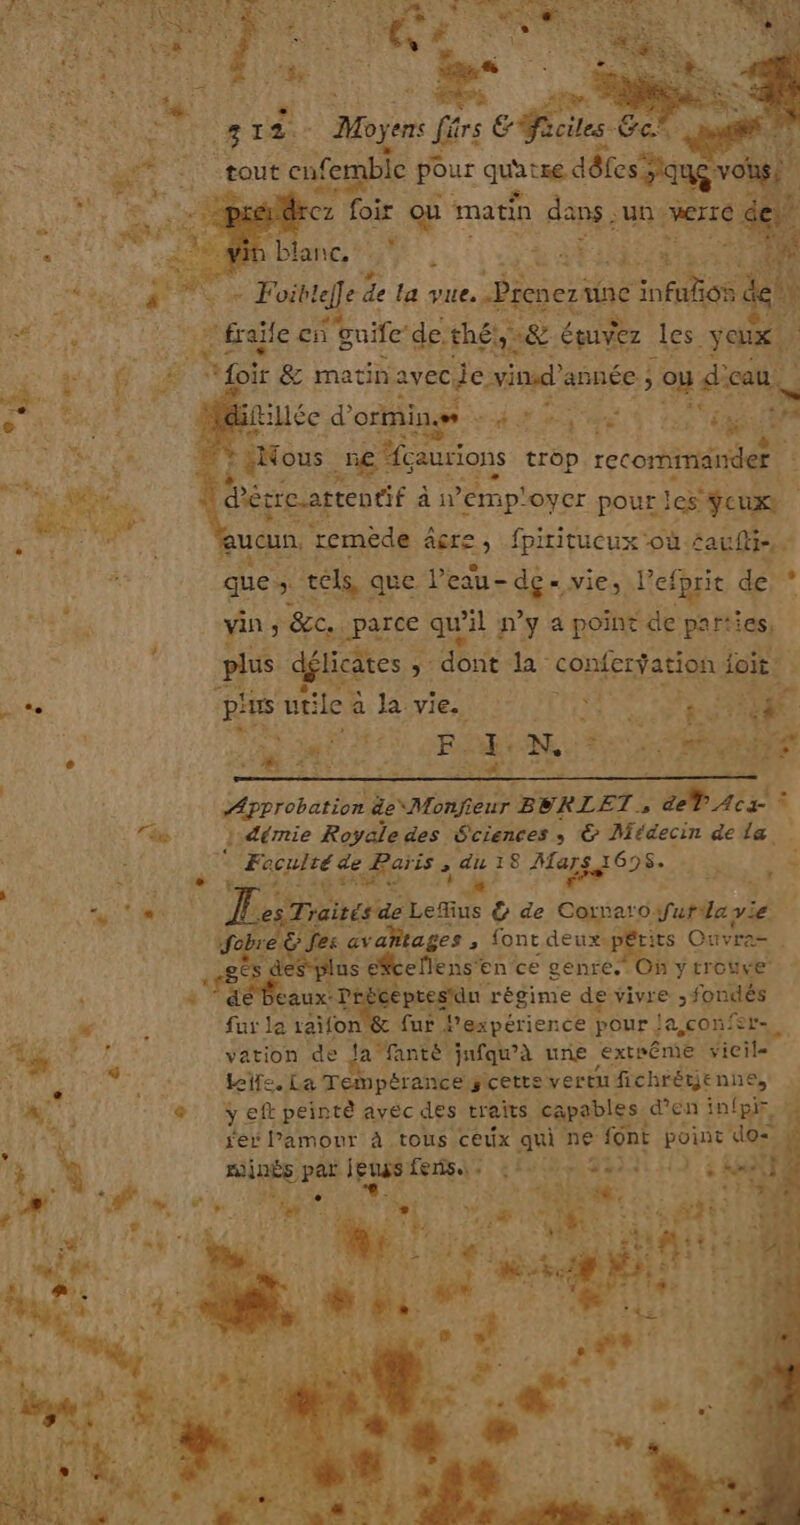 312 Moyens ſûrs & faciles &c.
tout enſemble pour quatre dôſes, que vous
prendrez ſoir ou matin dans un verre de
vin blanc.
Foibleſſe de la vue. Prenez une infuſion de
fraiſe en guiſe de thé, & étuvez les yeux
ſoir & matin avec le vin d'année ; ou d'eau
diſtillée d'ormin.
Nous ne ſçaurions trop recommander
d'être attentif à n'employer pour les yeux
aucun remède âcre, ſpiritueux où cauſti-
que, tels que l'eau-de-vie, l'eſprit de
vin, &c. parce qu'il n'y a point de parties
plus délicates, dont la conſervation ſoit
plus utile à la vie.
F I N.
Approbation de Monſieur BURLET, de l'Aca-
démie Royale des Sciences, & Médecin de la
Faculté de Paris, du 18 Mars 1698.
Les Traités de Leſſius & de Cornaro ſur la vie
ſobre & ſes avantages, ſont deux pétits Ouvra-
gés des plus excellens en ce genre. On y trouve
de beaux Préceptes du régime de vivre, fondés
ſur la raiſon & ſur l'expérience pour la conſer-
vation de la ſanté juſqu'à une extrême vieil-
leſſe. La Tempérance, cette vertu ſi chrétienne,
y eſt peinte avec des traits capables d'en inſpi-
rer l'amour à tous ceux qui ne ſont point do-
minés par leurs ſens.